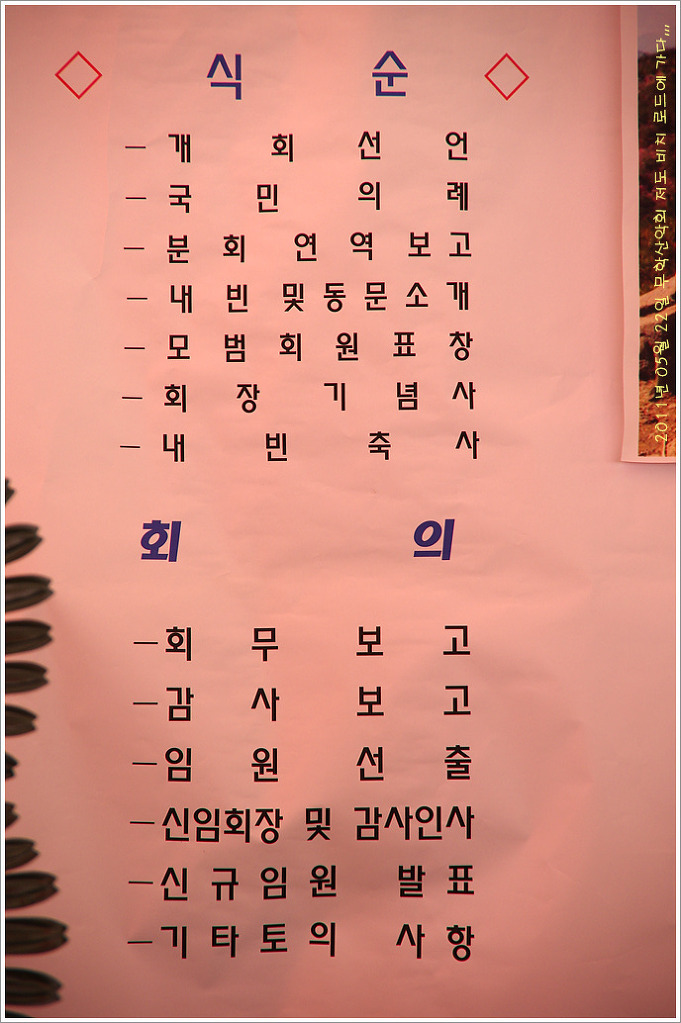 ◇ 식 순 ◇
- 개 회 선 언
- 국 민 의 례
- 분 회 연 역 보 고
- 내 빈 및 동 문 소 개
- 모 범 회 원 표 창
- 회 장 기 념 사
- 내 빈 축 사
회 의
- 회 무 보 고
- 감 사 보 고
- 임 원 선 출
- 신임회장 및 감사인사
- 신 규 임 원 발 표
- 기 타 토 의 사 항
2011년 05월 22일 무학산악회 저도 비치 로드에 가다,,,